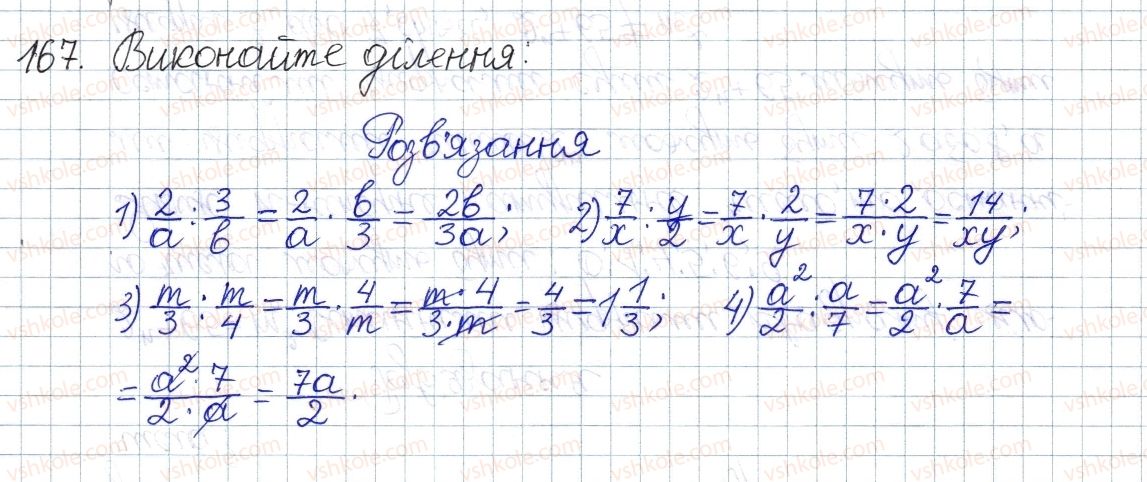 167. Виконайте ділення:
Розв'язання
1) 2/a : 3/b = 2/a · b/3 = 2b/3a; 2) 7/x : y/2 = 7/x · 2/y = 7·2/x·y = 14/xy;
3) m/3 : m/4 = m/3 · 4/m = m·4/3·m = 4/3 = 1 1/3; 4) a²/2 : a/7 = a²/2 · 7/a =
= a²·7/2·a = 7a/2.
vshkole.com